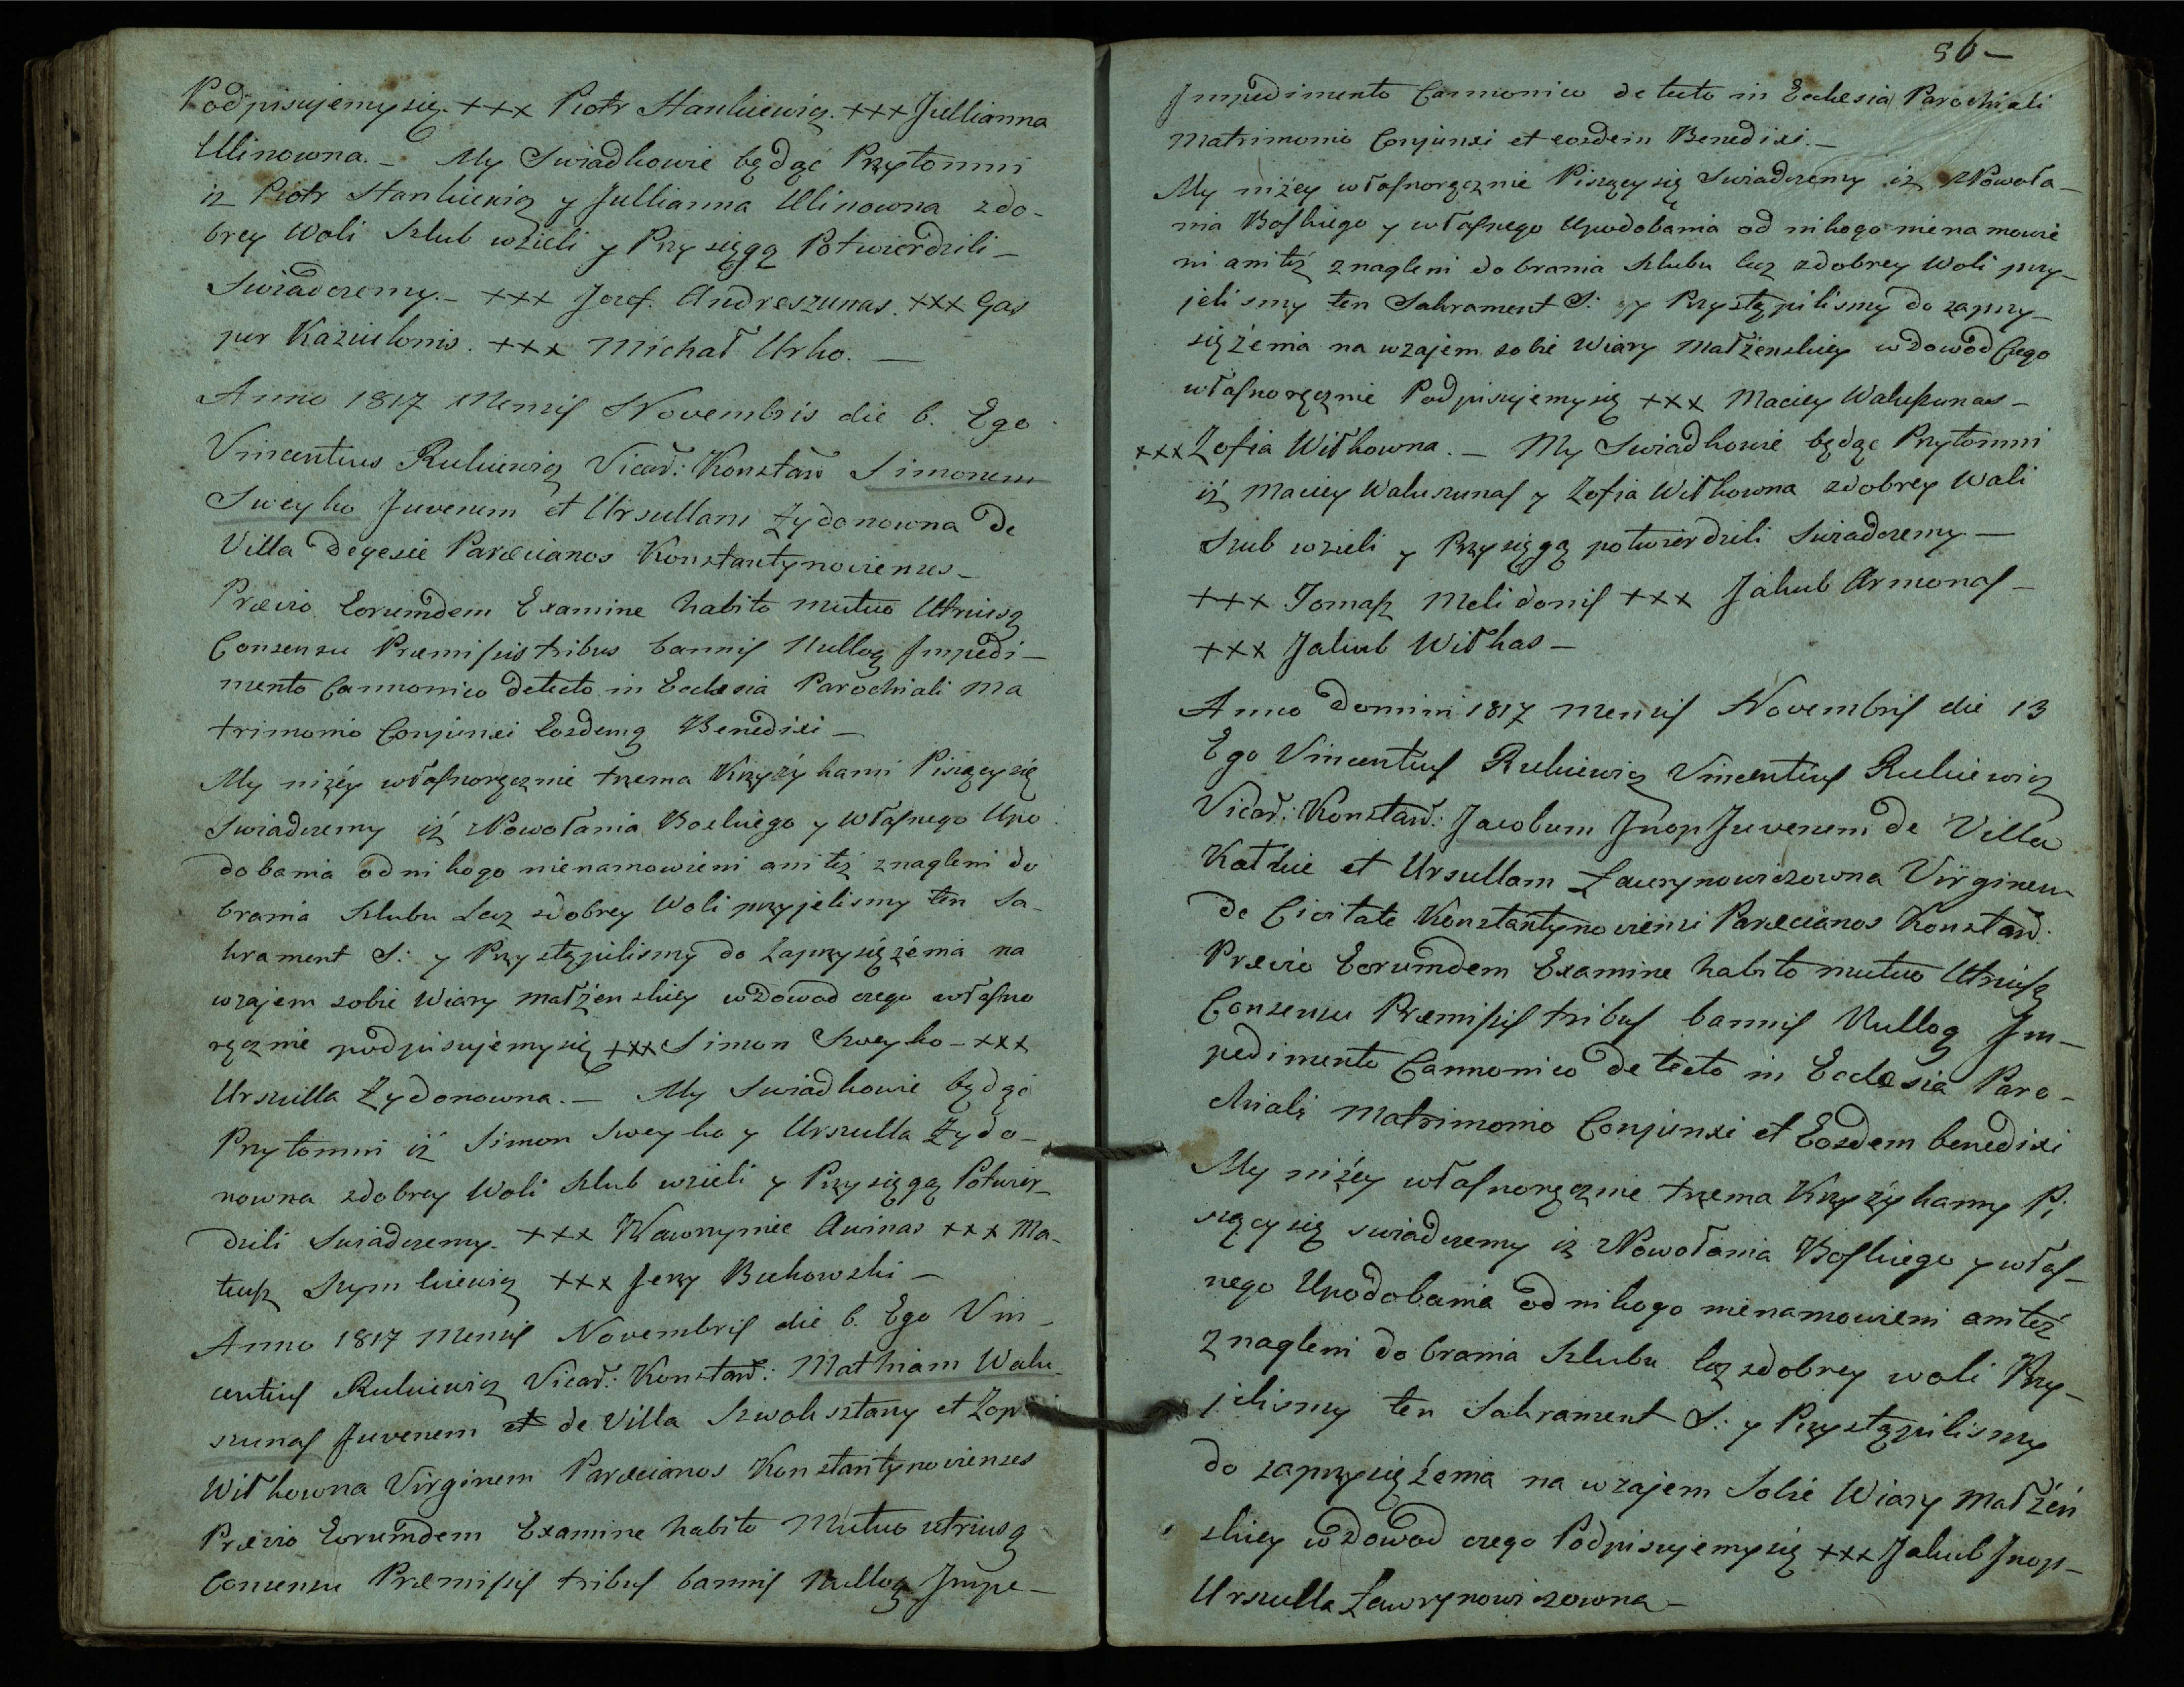 Podpisujemysię. +++ Piotr Stankiewicz. +++ Jullianna
Ulinowna. – My Swiadkowie będąc Przytomni
iz Piotr Stankiewicz y Jullianna Ulinowna zdo-
brey Woli Szlub wzieli y Przysięgą Potwierdzili –
Swiadczemy. – +++ Jozef. Andreszunas. +++ Gas
per Kaziulonis. +++ Michał Urbo. –
Anno 1817 Mensis Novembris die 6. Ego
Vincentius Rukiewicz Vicar: Konstan Simonem
Sweyko Juvenem et Ursullam Żydonowna de
Villa Degesie Paræcianos Konstantynovienses –
Prævio Eorumdem Examine habito mutuo Utriusq
Consensu Præmissis tribus bannis Nulloq Impedi –
mento Cannonico detecto in Ecclesia Parochiali Ma
trimonio Conjunxi Eosdemq Benedixi –
My niżéy własnoręcznie trzema Krzyżykami Piszącysię
Swiadczemy iż z Powołania Boskiego y Własnego Upo
dobania od nikogo nienamowieni ani też znagleni do
brania Szlubu Lecz zdobrey Woli przyjelismy ten Sa-
krament S: y Przystąpilismy do Zaprzysiężenia na
wzajem sobie Wiary małżenskiey wdowod czego własno
ręcznie podpisujemysię +++ Simon Sweyko – +++
Urszulla Żydonowna. – My Swiadkowie będąc
Przytomni iż Simon Sweyko y Urszulla Żydo –
nowna zdobrey Woli Szlub wzieli y Przysięgą Potwier –
dzili Swiadczemy. +++ Wawrzyniec Awinas +++ Ma-
teusz Szymkiewicz +++ Jerzy Bukowski –
Anno 1817 Mensis Novembris die 6. Ego Vin –
centius Rukiewicz Vicar: Konstan: Mathiam Walu
szunas Juvenem et de Villa Szwoksztany et Zop
Witkowna Virginem Paræcianos Konstantynovienses
Prævio Eorumdem Examine habito Mutuo utriusq
Consensu Præmissis tribus bannis Nulloq Impe –
56 –
Impedimento Cannonico detecto in Ecclesia Parochiali
Matrimonio Conjunxi et eosdem Benedixi. –
My niżey własnoręcznie Piszącysię Swiadczemy iz z Powoła –
nia Boskiego y własnego Upodobania od nikogo nie na mowie
ni ani też znagleni do brania Szlubu lecz zdobrey Woli przy –
jelismy ten Sakrament S: y Przystąpilismy do zaprzy –
siężenia na wzajem sobie Wiary małżenskiey wdowod Czego
własnoręcznie Podpisujemysię +++ Maciey Waluszunas –
+++ Zofia Witkowna. – My Swiadkowie będąc Przytomni
iż Maciey Waluszunas y Zofia Witkowna zdobrey Woli
Szub wzieli y Przysięgą potwierdzili Swiadczemy –
+++ Tomasz Melidonis +++ Jakub Armonas –
+++ Jakub Witkas –
Anno Domini 1817 Mensis Novembris die 13
Ego Vincentius Rukiewicz Vincentius Rukiewicz
Vicar: Konstan: Jacobum Jnop Juvenem de Villa
Kałkie et Ursullam Ławrynowiczowna Virginem
de Civitate Konstantynoviensi Paræcianos Konstan:
Prævio Eorumdem Examine habito mutuo Utriusq
Consensu Præmissis tribus bannis Nulloq Im –
pedimento Cannonico detecto in Ecclesia Paro –
chiali Matrimonio Conjunxi et Eosdem benedixi
My niżey własnoręcznie trzema Krzyżykamy Pi
szącysię swiadczemy iż z Powołania Boskiego y włas –
nego Upodobania od nikogo nienamowieni ani też
znagleni do brania Szlubu lecz zdobrey woli Przy –
jelismy ten Sakrament S: y Przystąpilismy
do zaprzysiężenia na wzajem Sobie Wiary małżeń
skiey wdowod czego Podpisujemysię +++ Jakub Jnop –
Urszulla Ławrynowiczowna –